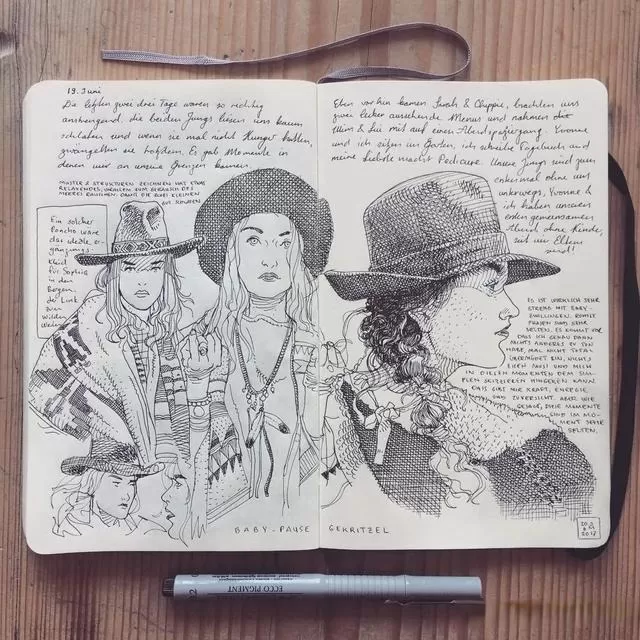 19. Juni
Die letzten zwei drei Tage waren so richtig
anstrengend. die beiden Jungs liessen uns kaum
schlafen und wenn sie mal nicht Hunger hatten,
zwängelten sie trotzdem. Es gab Momente in
denen wir an unsere Grenzen kamen.
MUSTER & STRUKTUREN ZEICHNEN HAT ETWAS
RELAXENDES, VORALLEM ZUM GERÄUSCH DES
MEERES RAUSCHEN, DANN DIE ZWEI KLEINEN
Ein solcher
Poncho wäre
das ideale er-
gänzungs-
Kleid
für Sophia
in den
Bergen.
die Link
zum
Wilden
Eben vorhin kamen Sarah & Chappie, brachten uns
zwei lecker aussehende Menus und nahmen die
Mim & Lui mit auf einen Abendspaziergang. Yvonne
und ich sitzen im Garten, ich schreibe Tagebuch und
meine liebste macht Pedicure. Unsere Jungs sind zum
erstenmal ohne uns
unterwegs. Yvonne &
ich haben unseren
ersten gemeinsamen
Abend ohne Kinder,
seit wir Eltern
sind!
ES IST WIRKLICH SEHR
STRENG MIT BABY-
ZWILLINGEN. RUHIGE
PHASEN SIND SEHR
SELTEN. ES KOMMT VOR
DASS ICH GENAU DANN
NICHTS ANDERES ZU TUN
HABE, MAL NICHT TOTAL
ÜBERMÜDET BIN, NICHTS
ESSEN MUSS UND MICH
IN DIESEN MOMENTEN DEM SIM-
PLEN SKIZZIEREN HINGEBEN KANN.
DAS GIBT MIR KRAFT, ENERGIE
UND ZUVERSICHT. ABER WIE
GESAGT, DIESE MOMENTE
SIND IM MO-
MENT SEHR
SELTEN.
BABY-PAUSE GEKRITZEL
20
6
2017
0.2 ECCO PIGMENT